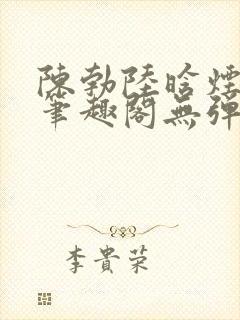 陳勃陸晗煙
筆趣閣無彈
李貴荣